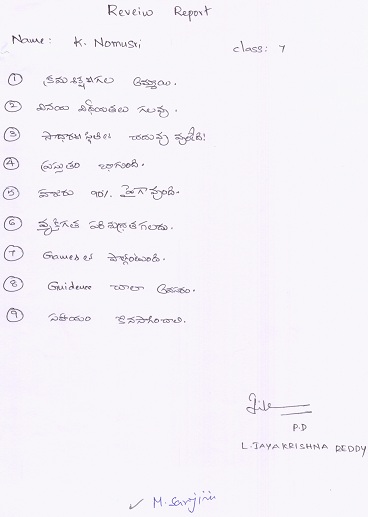 Reveiw Report
Name: K. Nomusri class: 7
① క్రమశిక్షణగల అమ్మాయి.
② వినయ విధేయతలు గలవు.
③ సాధారణ స్థితిలో చదువు వుంది!
④ ప్రస్తుతం బాగుంది.
⑤ హాజరు 90% పైగా వుంది.
⑥ వ్యక్తిగత పరిశుభ్రత గలదు.
⑦ Games లో పాల్గొంటుంది.
⑧ Guidence చాలా అవసరం.
⑨ సహాయం కొనసాగించాలి.
P.D
L. JAYAKRISHNA REDDY
✓ M. Sanjini